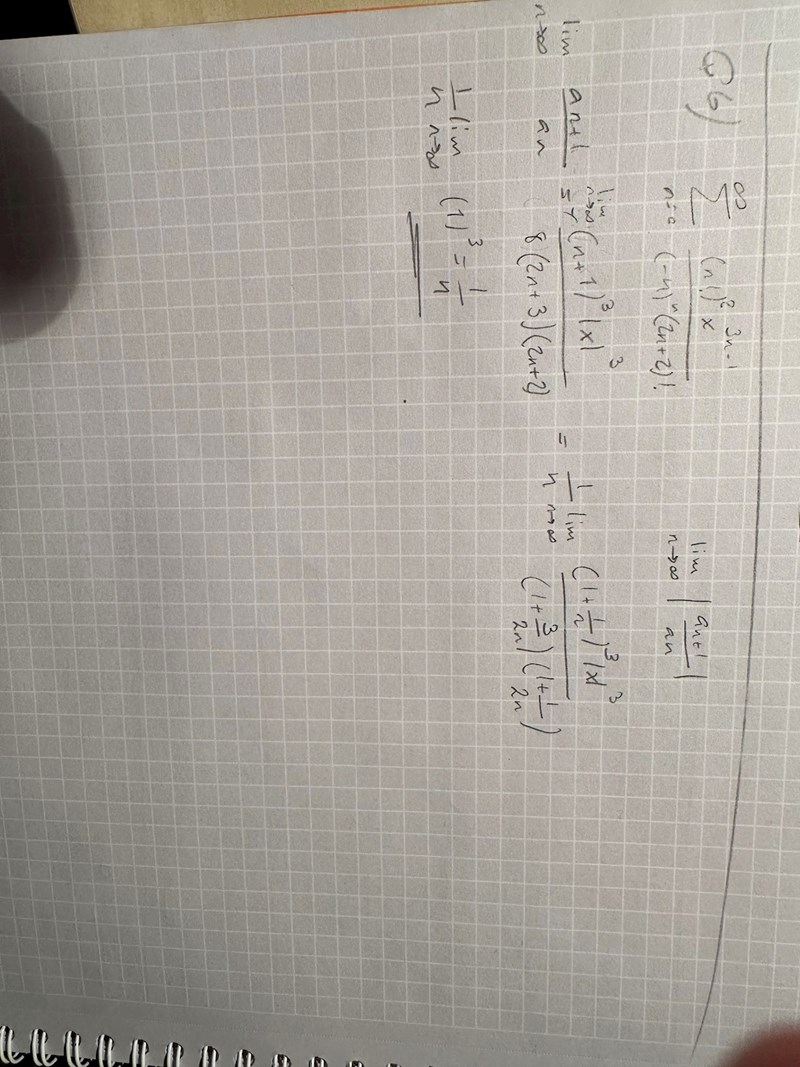 6) ∞ Σ n=0 (n!)² x³ⁿ⁻¹ / (-4)ⁿ (2n+2)! lim n→∞ | an+1 / an |
lim n→∞ an+1 / an = lim n→∞ (n+1)³ |x|³ / 8(2n+3)(2n+2) = 1/4 lim n→∞ (1+1/n)³ |x|³ / (1+3/2n)(1+1/2n)
1/4 lim n→∞ (1)³ = 1/4